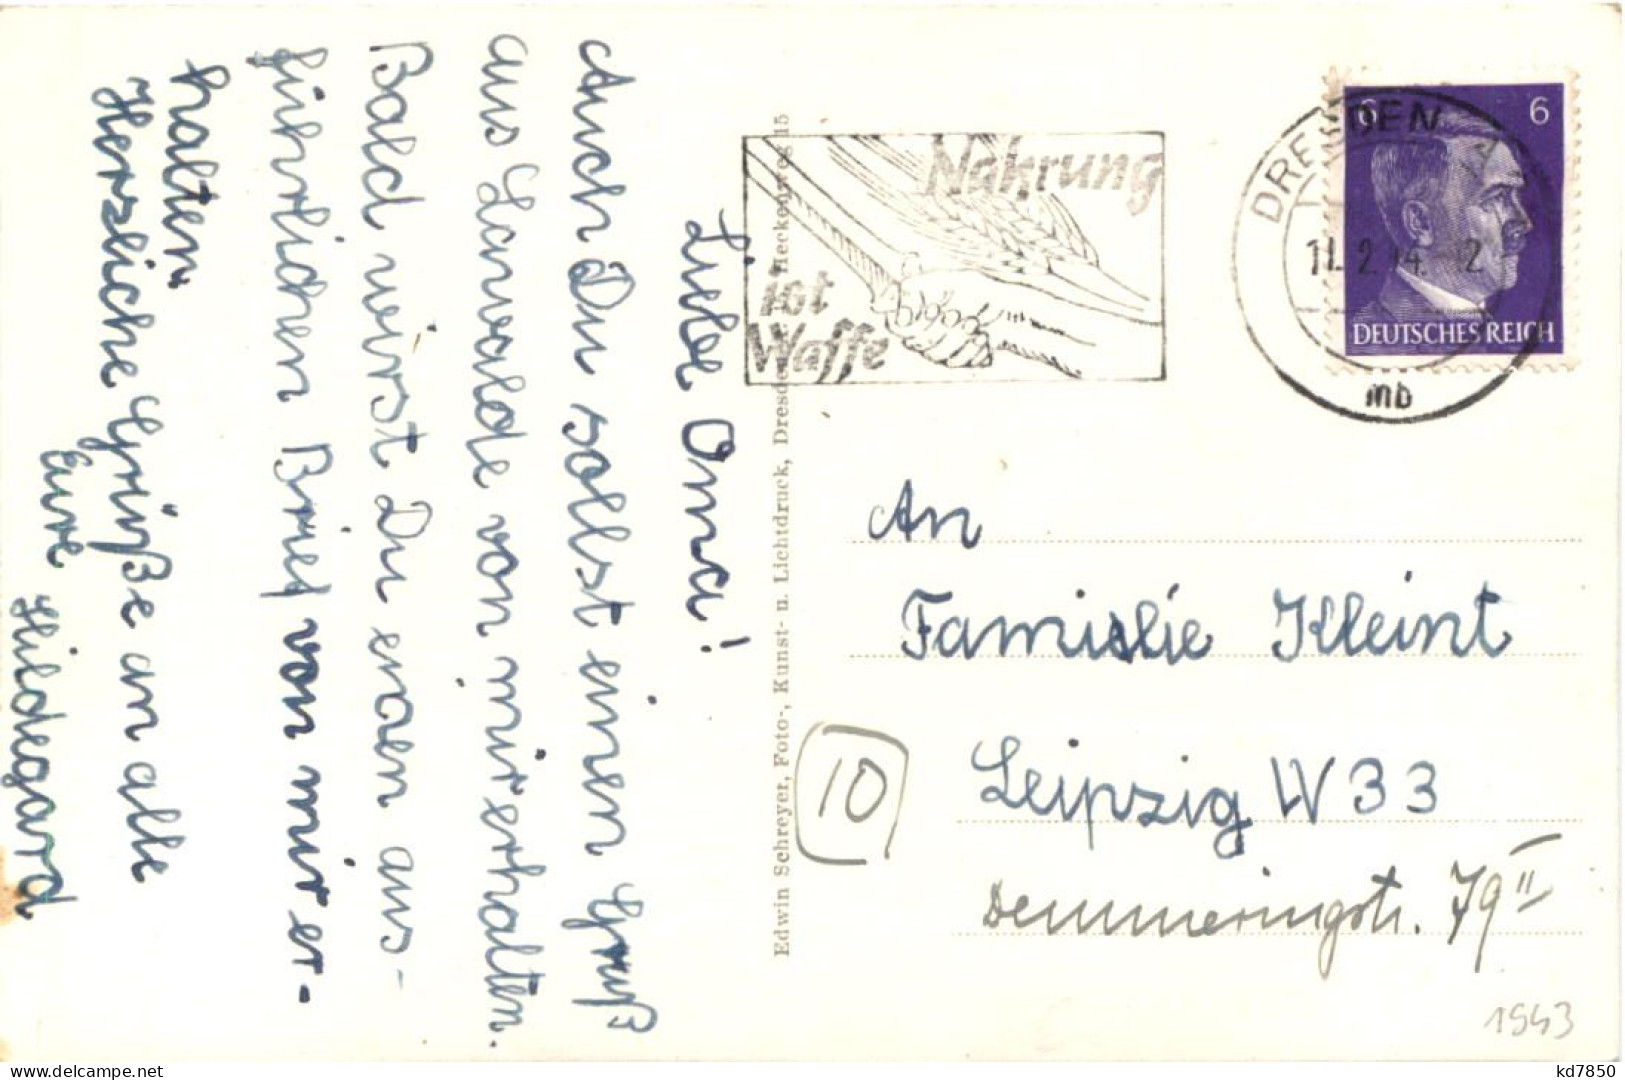 Liebe Oma!
Auch Du sollst einen Gruß
aus Lanvalde von mir erhalten.
Bald wirst Du einen aus-
führlichen Brief von mir er-
halten
Herzliche Grüße an alle
Eure Hildegard
Edwin Schreyer, Foto-, Kunst- u. Lichtdruck, Dresden, Heckenweg 15
Nahrung
ist
Waffe
DRESDEN A
11.2.4 12
mb
6 6
DEUTSCHES REICH
An
Familie Kleint
10
Leipzig W 33
Demmeringstr. 79 II
1943
kd7850